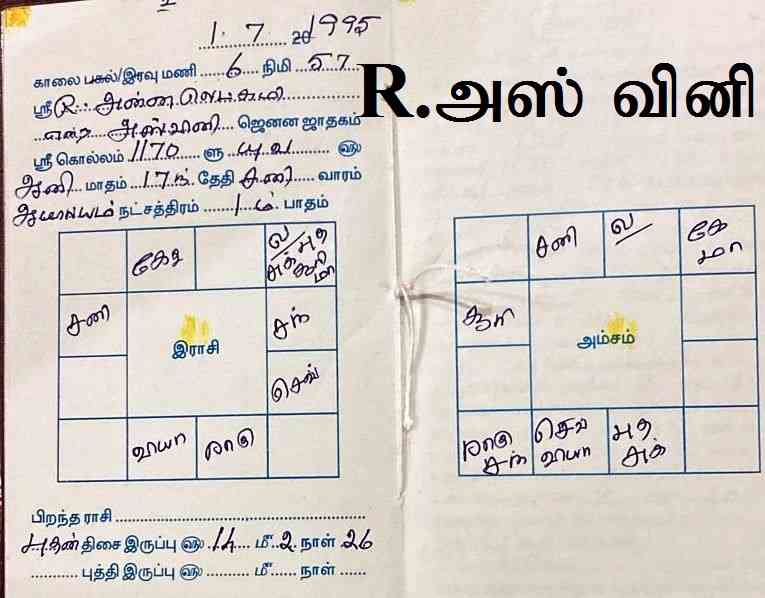 1 7 1995
R.அஸ் வினி
காலை பகல்/இரவு மணி 6 நிமி 57
ஸ்ரீ R.
அஸ்வினி ஜெனன ஜாதகம்
ஸ்ரீ கொல்லம் 1170 ளு யுவ ௵
ஆனி மாதம் 17ந் தேதி சனி வாரம்
ஆயில்யம் நட்சத்திரம் 1ம் பாதம்
கேது
ல/ புத சுக் சூரி மா
சனி
சந்
இராசி
செவ்
வியா ராகு
சனி ல/ கே மா
சூரி
அம்சம்
ராகு சந் செவ் வியா புத சுக்
பிறந்த ராசி
புதன் திசை இருப்பு ௵ 14 மீ 2 நாள் 26
புத்தி இருப்பு ௵ மீ நாள்